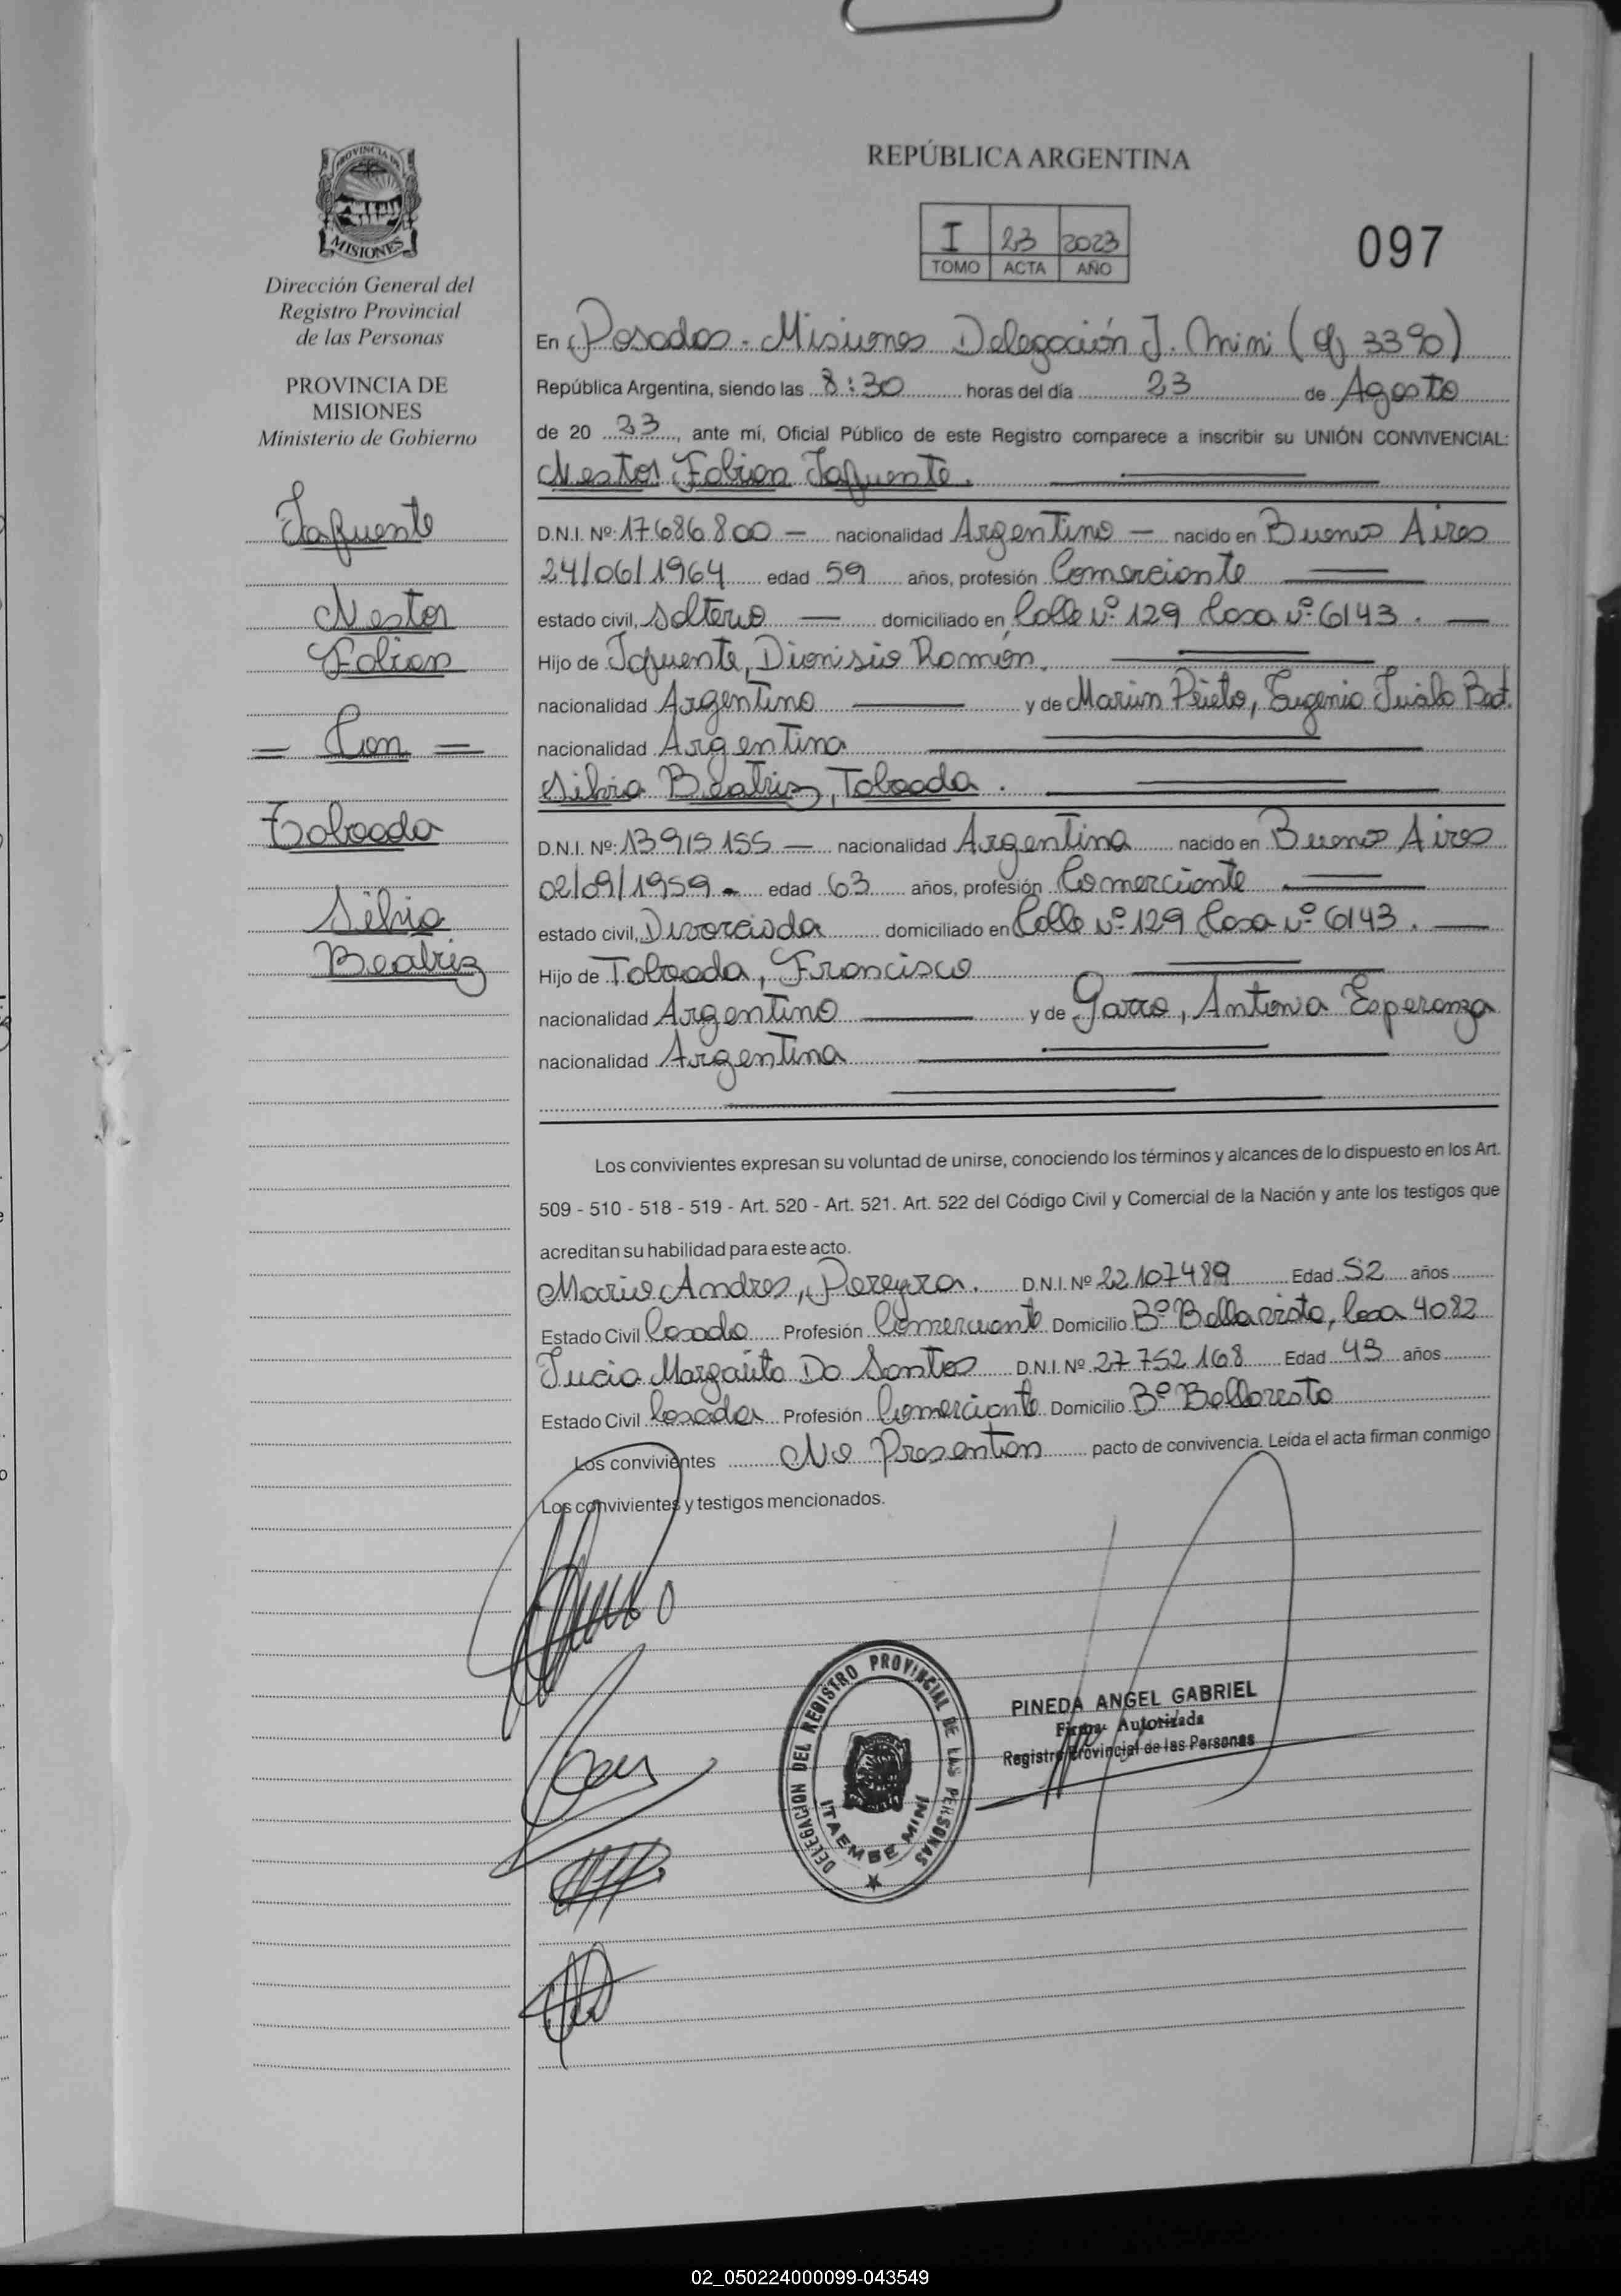 PROVINCIA DE
MISIONES
Dirección General del
Registro Provincial
de las Personas
PROVINCIA DE
MISIONES
Ministerio de Gobierno
Lafuente
Nestor
Fabian
= Con =
Taboada
Silvia
Beatriz
REPÚBLICA ARGENTINA
I 23 2023
TOMO ACTA AÑO
097
En Posadas - Misiones Delegación I. Mini (Of 3390)
República Argentina, siendo las 8:30 horas del día 23 de Agosto
de 20 23, ante mí, Oficial Público de este Registro comparece a inscribir su UNIÓN CONVIVENCIAL:
Nestor Fabian Lafuente.
D.N.I. Nº: 17686800 — nacionalidad Argentino — nacido en Buenos Aires
24/06/1964 edad 59 años, profesión Comerciante
estado civil, Soltero — domiciliado en Calle Nº 129 Casa Nº 6143. —
Hijo de Lafuente, Dionisio Ramón.
nacionalidad Argentino y de Marin Prieto, Eugenia
nacionalidad Argentina
Silvia Beatriz, Taboada.
D.N.I. Nº: 13915155 — nacionalidad Argentina nacido en Buenos Aires
02/09/1959 edad 63 años, profesión Comerciante
estado civil, Divorciada domiciliado en Calle Nº 129 Casa Nº 6143. —
Hijo de Taboada, Francisco
nacionalidad Argentino y de Garro, Antonia Esperanza
nacionalidad Argentina
Los convivientes expresan su voluntad de unirse, conociendo los términos y alcances de lo dispuesto en los Art.
509 - 510 - 518 - 519 - Art. 520 - Art. 521. Art. 522 del Código Civil y Comercial de la Nación y ante los testigos que
acreditan su habilidad para este acto.
Mario Andres, Pereyra. D.N.I. Nº 22107489 Edad 52 años
Estado Civil Casado Profesión Comerciante Domicilio Bº Bella vista, Casa 4082
Lucia Margarita Do Santos D.N.I. Nº 27752168 Edad 43 años
Estado Civil Casada Profesión Comerciante Domicilio Bº Bellavista
Los convivientes No Presentan pacto de convivencia. Leída el acta firman conmigo
Los convivientes y testigos mencionados.
DELEGACION DEL REGISTRO PROVINCIAL DE LAS PERSONAS
ITAEMBE MINI
PINEDA ANGEL GABRIEL
Firma Autorizada
Registro Provincial de las Personas
02_050224000099-043549